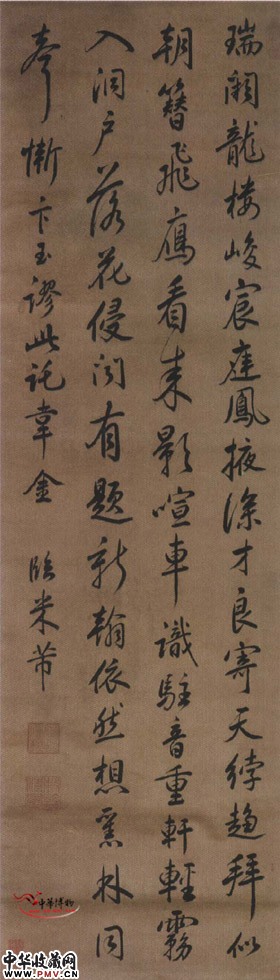 瑞闕龍樓峻宸庭鳳掖深才良寄天綍趨拜似
朝簪飛鳧看來影喧車識駐音重軒輕霧
入洞戶落花侵聞有題新翰依然想舊林同
聲慚卞玉謬此託韋金 臨米芾
中華博物
中华收藏网
WWW.PMV.CN